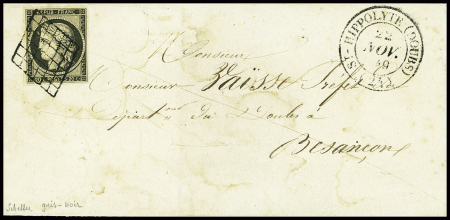 REPUB. FRANC.
ST-HIPPOLYTE (DOUBS)
22
NOV.
49
(24)
Monsieur
Monsieur Vaïsse Préfet
Départ du Doubs à
Besançon
Scheller gris-noir